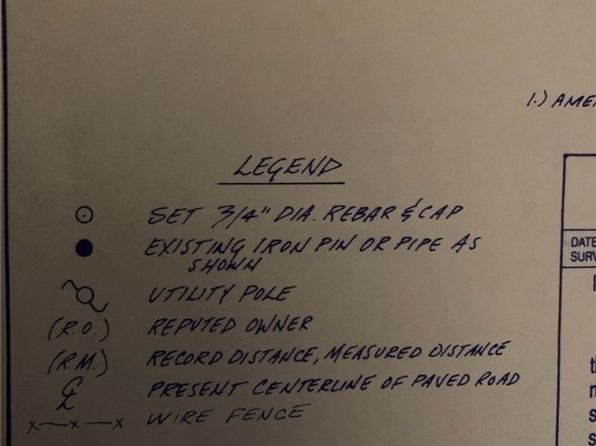 1.) AME
LEGEND
SET 3/4" DIA. REBAR & CAP
EXISTING IRON PIN OR PIPE AS
SHOWN
UTILITY POLE
(R.O.) REPUTED OWNER
(R.M.) RECORD DISTANCE, MEASURED DISTANCE
℄ PRESENT CENTERLINE OF PAVED ROAD
x—x—x WIRE FENCE
DATE
SURV